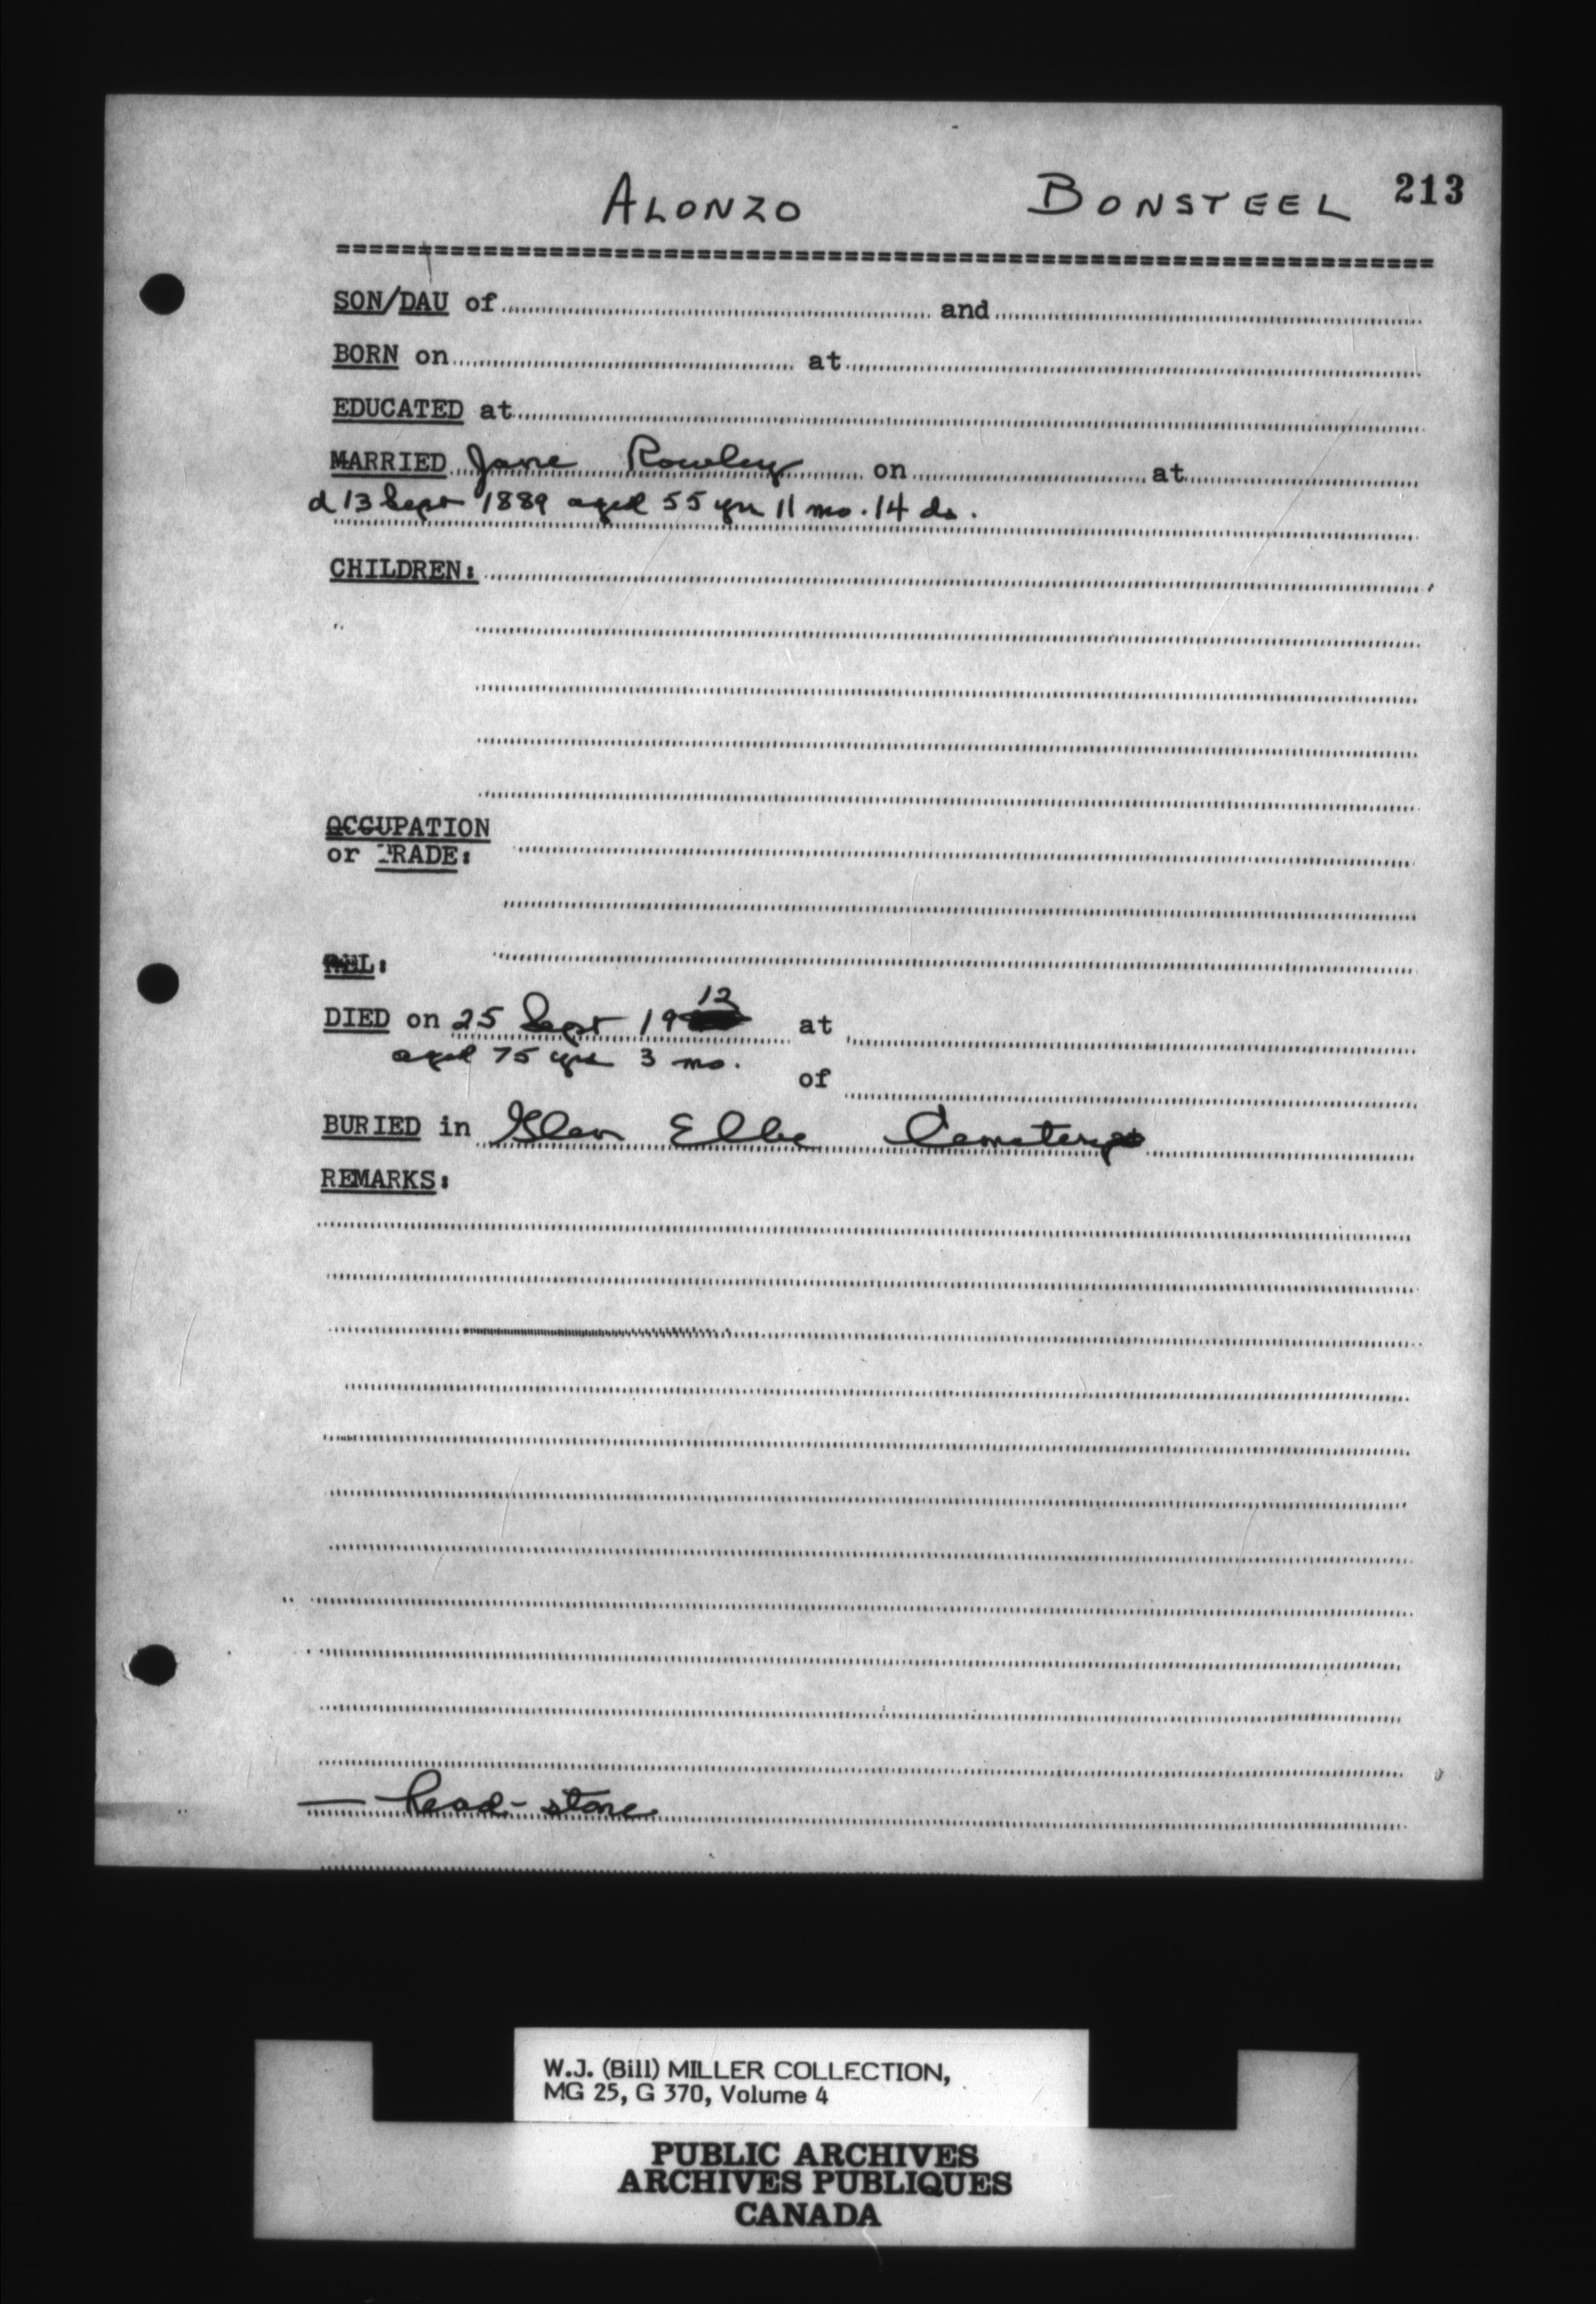 ALONZO BONSTEEL 213
SON/DAU of and
BORN on at
EDUCATED at
MARRIED Jane Rowley on at
d 13 Sept 1889 aged 55 yrs 11 mo. 14 ds.
CHILDREN:
OCCUPATION
or TRADE:
REL:
DIED on 25 Sept 1912 at
aged 75 yrs 3 mo.
of
BURIED in Glen Elbe Cemetery
REMARKS:
— head-stone
W.J. (Bill) MILLER COLLECTION,
MG 25, G 370, Volume 4
PUBLIC ARCHIVES
ARCHIVES PUBLIQUES
CANADA